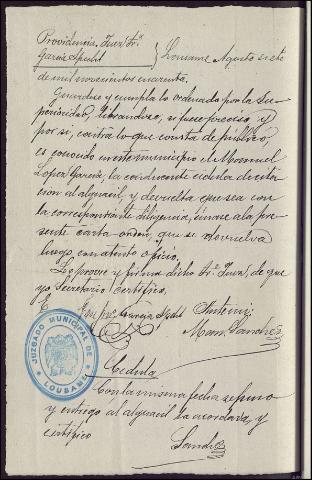 Providencia, Juez Sr.
García Spuld
Lousame Agosto siete
de mil novecientos cuarenta.
Guárdese y cumpla lo ordenado por la Su-
perioridad, librándose, si fuese preciso, y
por si, contra lo que consta de público,
es conocido en este municipio el Manuel
López García, la conducente cédula de cita-
ción al alguacil, y devuelta que sea con
la correspondiente diligencia, únase a la pre-
sente carta orden, que se devuelva
luego, con atento oficio.
Lo proveyó y firma dicho Sr. Juez, de que
yo Secretario certifico.
García Spuld
Ante mi,
Man. Sandez
Cedula
Con la misma fecha se puso
y entregó al alguacil la acordada, y
certifico
Sandez
JUZGADO MUNICIPAL DE
LOUSAME